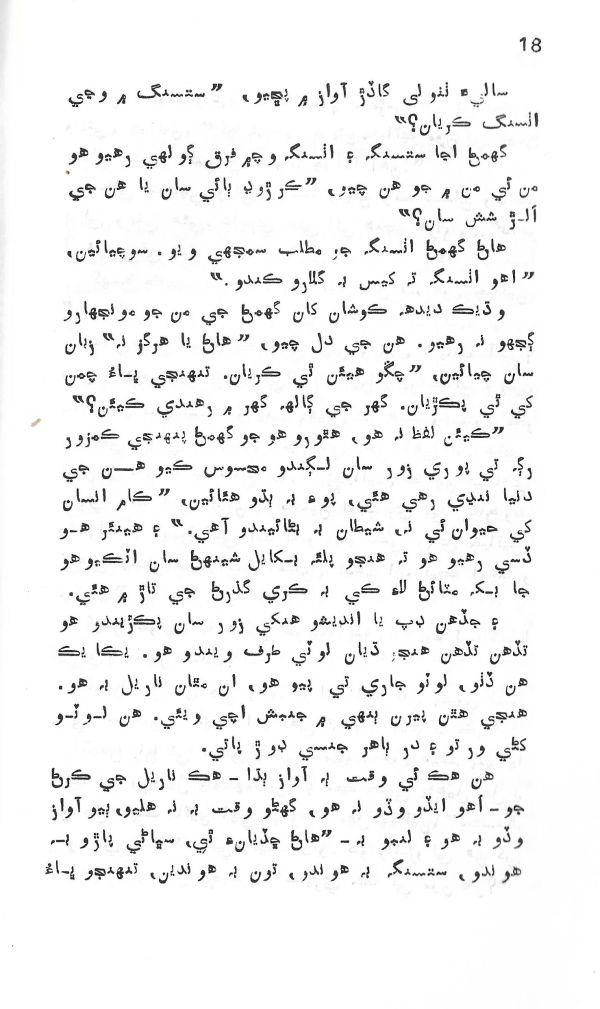 18
ساليءَ نٿو لي گاڏڙ آواز ۾ پڇيو، ”ستسنگ ۾ وڃي
اٿسنگ ڪريان؟“
گهمڻ اڃا ستسنگ ۽ اٿسنگ وچ ۾ فرق ڳولهي رهيو هو
من ئي من ۾ جو هن چيو، ”ڪرڙوڊ ٻائي سان يا هن جي
الـڙ شش سان؟“
هاڻ گهمڻ اٿسنگ جو مطلب سمجهي ويو. سوچيائين،
”اهو اٿسنگ تہ ڪيس بہ گلارو ڪندو.“
وڌيڪ ديدهہ ڪوشان کان گهمڻ جي من جو مونجهارو
ڳجهو نہ رهيو. هن جي دل چيو، ”هاڻ يا هرگز نہ“ زبان
سان چيائين، ”چڱو هيئن ٿي ڪريان. تنهنجي ڀـاءُ چمن
کي ٿي پڪڙيان. گهر جي ڳالهہ گهر ۾ رهندي ڪيئن؟“
”ڪيئن لفظ نہ هو، هٿورو هو جو گهمڻ پنهنجي ڪمزور
رڳ تي پوري زور سان لـڳندو محسوس ڪيو هــن جي
دنيا ننڍي رهي هئي، پوءِ بہ ٻڌو هئائين، ”ڪام انسان
کي حيوان ئي نہ، شيطان بہ بڻائيندو آهي.“ ۽ هينئر هـو
ڏسي رهيو هو تہ هنجو پلئہ بکايل شينهن سان اٽڪيو هو
جا بک مٽائڻ لاءِ کي بہ ڪري گذرڻ جي تاڙ ۾ هئي.
۽ جڏهن ڊپ يا انديشو هنکي زور سان پڪڙيندو هو
تڏهن تڏهن هنجو ڌيان لوٽي طرف ويندو هو. يڪا يڪ
هن ڏٺو، لوٽو جاري تي پيو هو، ان مٿان ناريل بہ هو.
هنجي هٿن پيرن ٻنهي ۾ جنبش اچي ويئي. هن لـوٽـو
کڻي ورتو ۽ در ٻاهر جنسي ڊوڙ پاتي.
هن هڪ ئي وقت ٻہ آواز ٻڌا ـ هڪ ناريل جي ڪرڻ
جو ـ اهو ايڏو وڏو نہ هو، گهڻو وقت بہ نہ هليو، ٻيو آواز
وڏو بہ هو ۽ لنبو بہ ـ ”هاڻ ڇڏيانءِ ٿي، سڀاڻي پاڙو بـہ
هوندو، ستسنگ بہ هوندو، تون بہ هوندين، تنهنجو ڀـاءُ